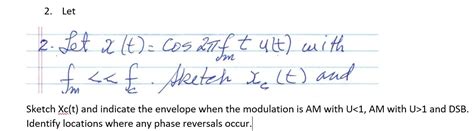 2. Let
2. Let x(t) = cos 2πfm t u(t) with
fm << fc. Sketch xc(t) and
Sketch Xc(t) and indicate the envelope when the modulation is AM with U<1, AM with U>1 and DSB.
Identify locations where any phase reversals occur.